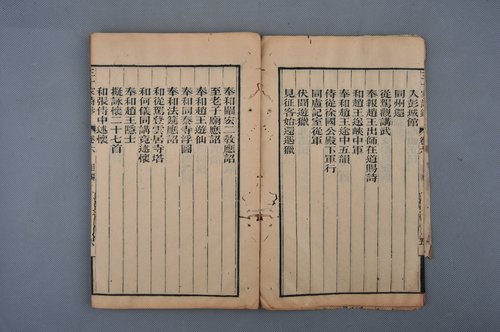 入彭城館
同州還
從駕觀講武
奉報趙王出師在道賜詩
和趙王送峽中軍
奉和趙王途中五韻
侍從徐國公殿下軍行
同盧記室從軍
伏聞遊獵
見征客始還遇獵
奉和闡弘二教應詔
至老子廟應詔
奉和趙王遊仙
奉和同泰寺浮圖
奉和法筵應詔
和從駕登雲居寺塔
和何儀同講竟述懷
奉和趙王隱士
擬詠懷二十七首
和張侍中述懷